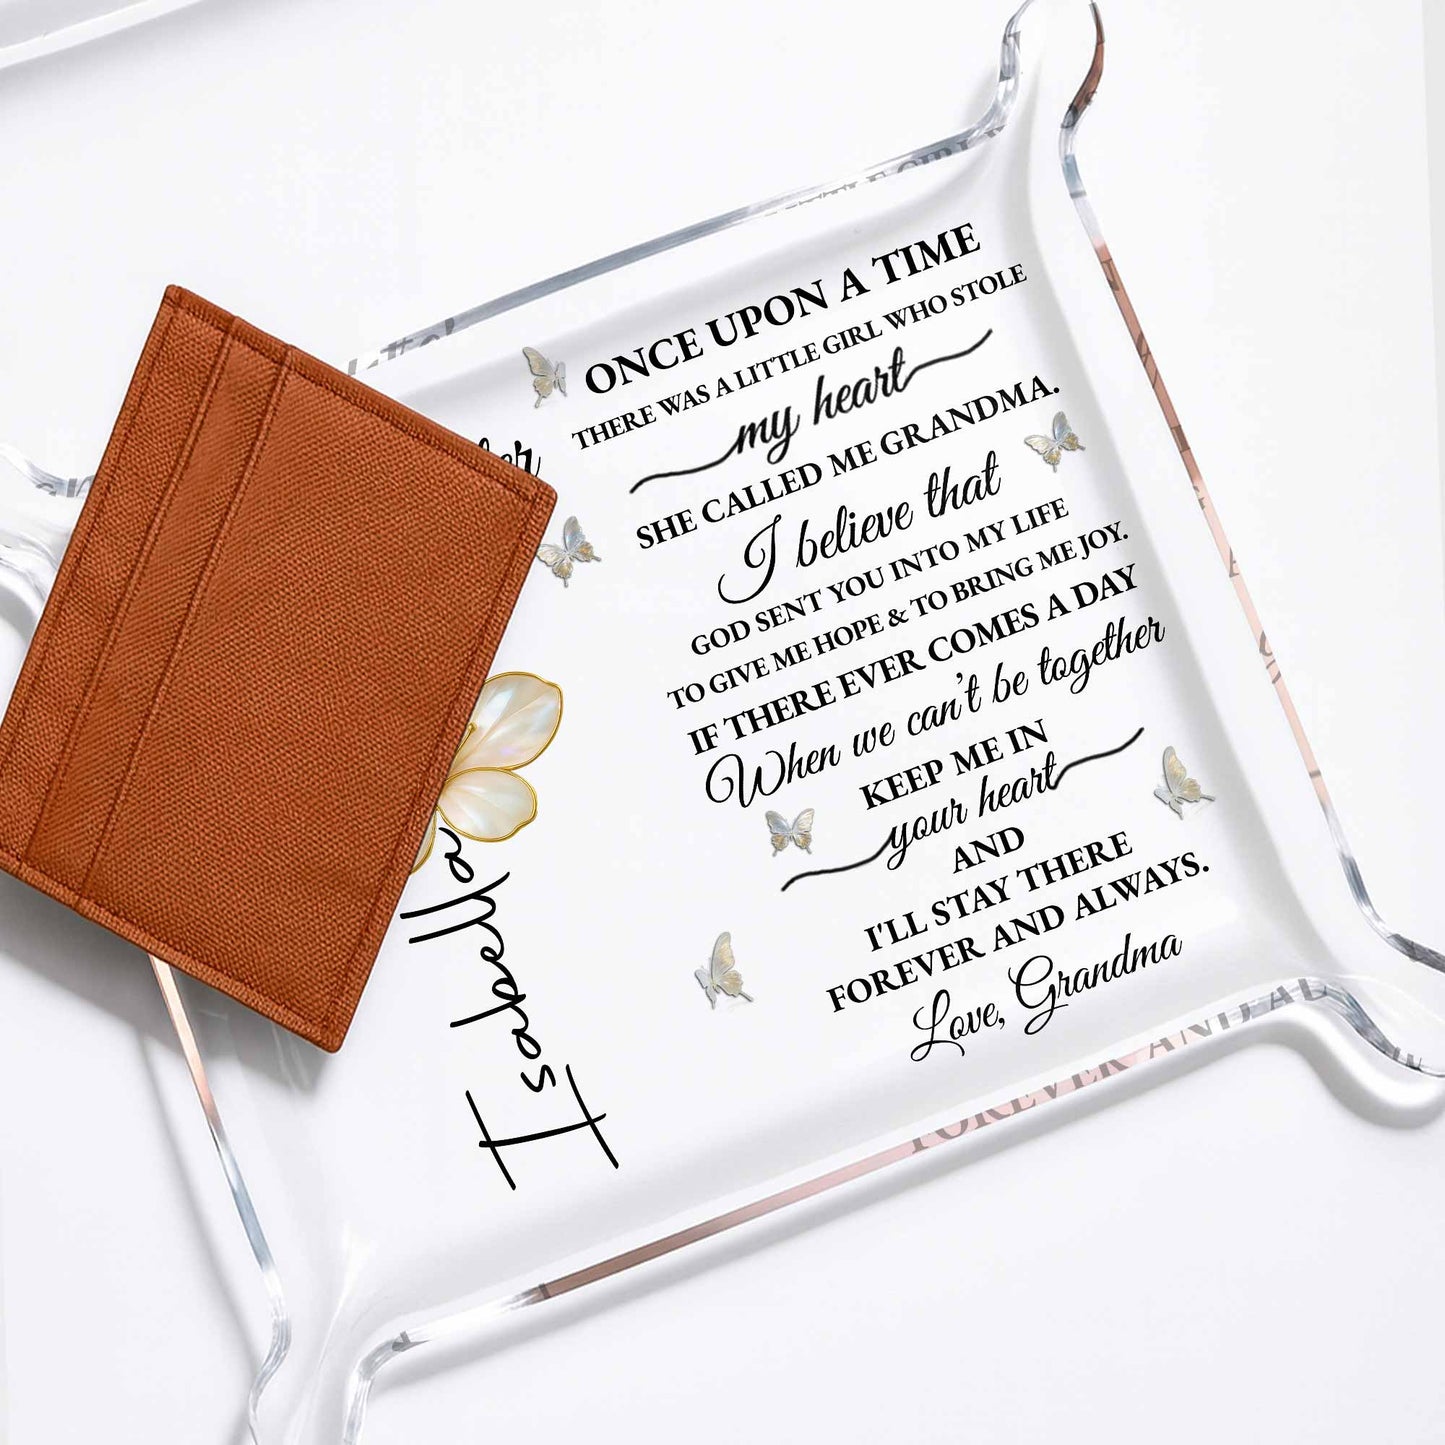 ONCE UPON A TIME
THERE WAS A LITTLE GIRL WHO STOLE
my heart
SHE CALLED ME GRANDMA.
I believe that
GOD SENT YOU INTO MY LIFE
TO GIVE ME HOPE & TO BRING ME JOY.
IF THERE EVER COMES A DAY
When we can't be together
KEEP ME IN
your heart
AND
I'LL STAY THERE
FOREVER AND ALWAYS.
Love, Grandma
Isabella
FOREVER AND AL